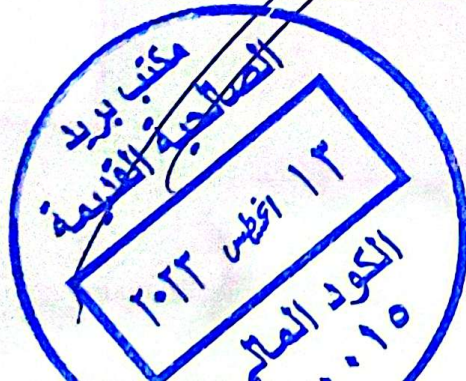 مكتب بريد
الصالحية القديمة
١٣ اغسطس ٢٠٢٣
الكود المالي